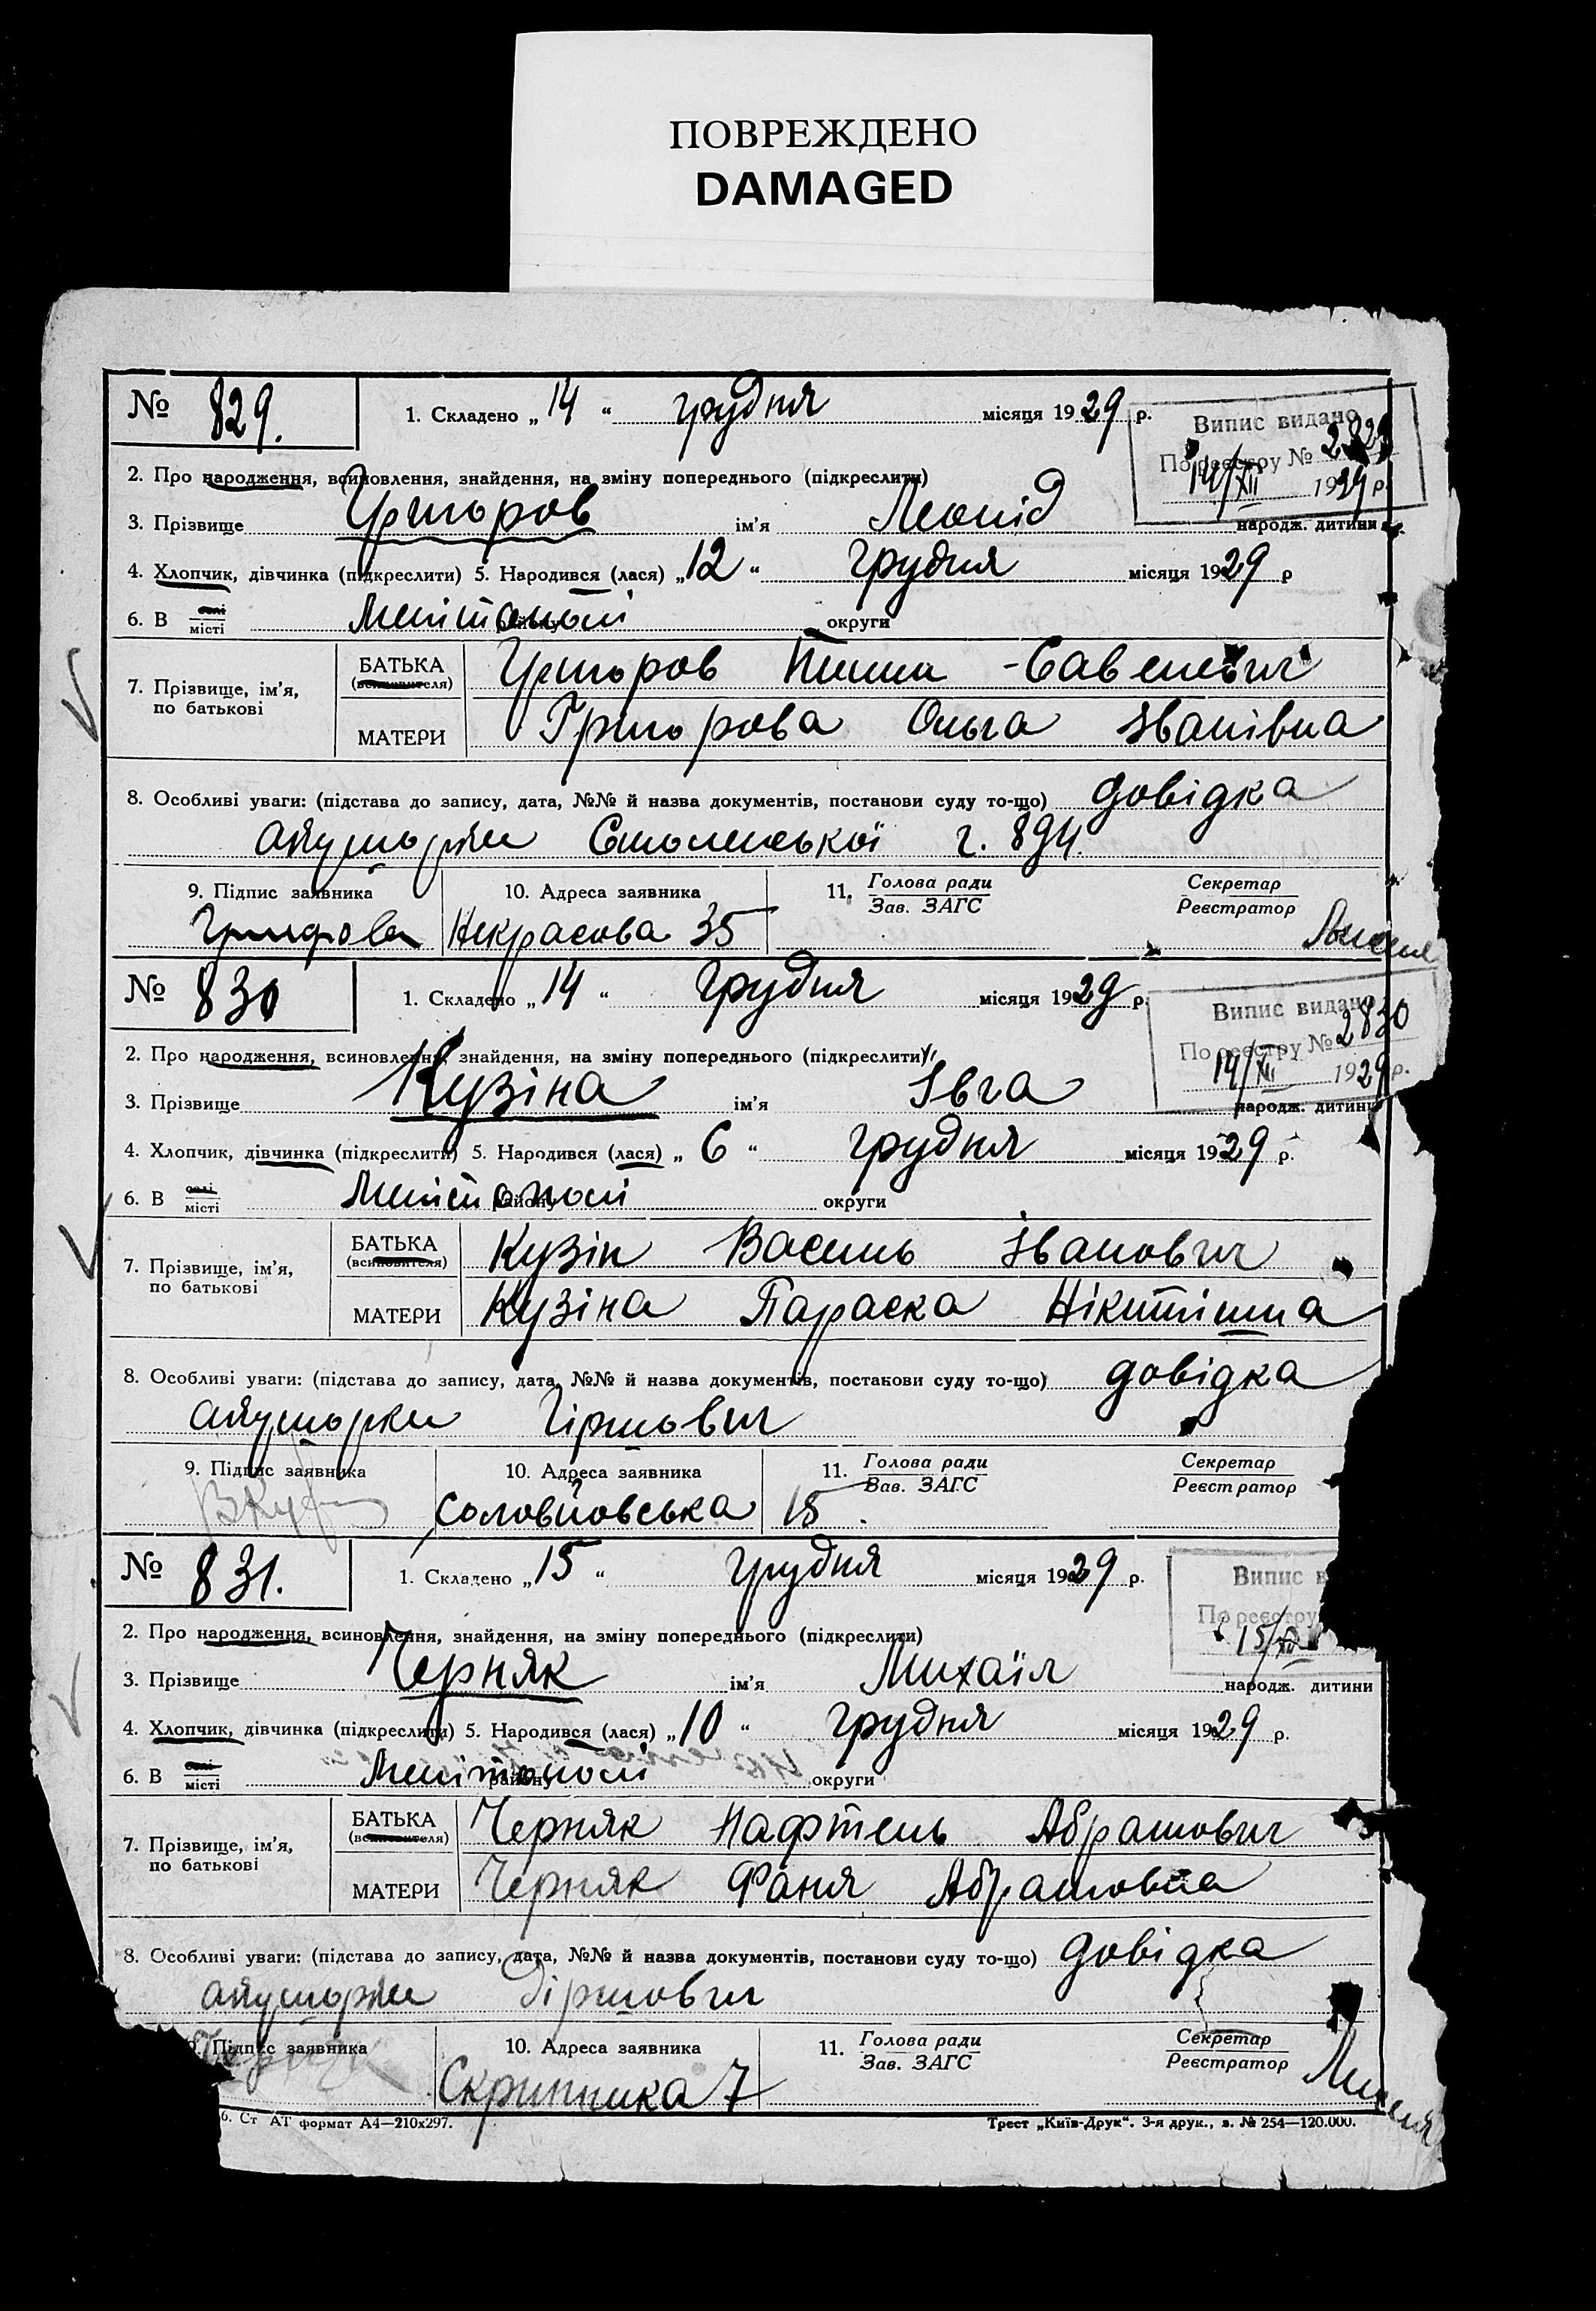 ПОВРЕЖДЕНО
DAMAGED
№ 829.
1. Складено „14“ грудня місяця 1929 р.
Випис видано
По реєстру № 2829
14/XII 1929 р.
2. Про народження, всиновлення, знайдення, на зміну попереднього (підкреслити)
3. Прізвище Григоров ім’я Леонід народж. дитини
4. Хлопчик, дівчинка (підкреслити) 5. Народився (лася) „12“ грудня місяця 1929 р
6. В селі місті Мелітополі району округи
7. Прізвище, ім’я, по батькові
БАТЬКА (всиновителя) Григоров Савелевич
МАТЕРИ Григорова Ольга Іванівна
8. Особливі уваги: (підстава до запису, дата, №№ й назва документів, постанови суду то-що) довідка
акушорки Смоленської г. 894.
9. Підпис заявника
10. Адреса заявника
11. Голова ради
Зав. ЗАГС
Секретар
Реєстратор
Григорова Некрасова 35
№ 830
1. Складено „14“ грудня місяця 1929 р.
Випис видано
По реєстру № 2830
14/XII 1929 р.
2. Про народження, всиновлення, знайдення, на зміну попереднього (підкреслити)
3. Прізвище Кузіна ім’я Івга народж. дитини
4. Хлопчик, дівчинка (підкреслити) 5. Народився (лася) „6“ грудня місяця 1929 р.
6. В селі місті Мелітополі району округи
7. Прізвище, ім’я, по батькові
БАТЬКА (всиновителя) Кузін Василь Іванович
МАТЕРИ Кузіна Параска Нікитішна
8. Особливі уваги: (підстава до запису, дата, №№ й назва документів, постанови суду то-що) довідка
акушорки Гіршович
9. Підпис заявника
10. Адреса заявника
11. Голова ради
Зав. ЗАГС
Секретар
Реєстратор
Соловйовська 15.
№ 831.
1. Складено „15“ грудня місяця 1929 р.
Випис в
По реєстру
15/XII
2. Про народження, всиновлення, знайдення, на зміну попереднього (підкреслити)
3. Прізвище Черняк ім’я Михаїл народж. дитини
4. Хлопчик, дівчинка (підкреслити) 5. Народився (лася) „10“ грудня місяця 1929 р.
6. В селі місті Мелітополі району округи
7. Прізвище, ім’я, по батькові
БАТЬКА (всиновителя) Черняк Нафтель Абрамович
МАТЕРИ Черняк Фаня Абрамовна
8. Особливі уваги: (підстава до запису, дата, №№ й назва документів, постанови суду то-що) довідка
акушорки Гіршович
9. Підпис заявника
10. Адреса заявника
11. Голова ради
Зав. ЗАГС
Секретар
Реєстратор
Скрипника 7
6. Ст АТ формат А4—210x297.
Трест „Київ-Друк“. 3-я друк., з. № 254—120.000.